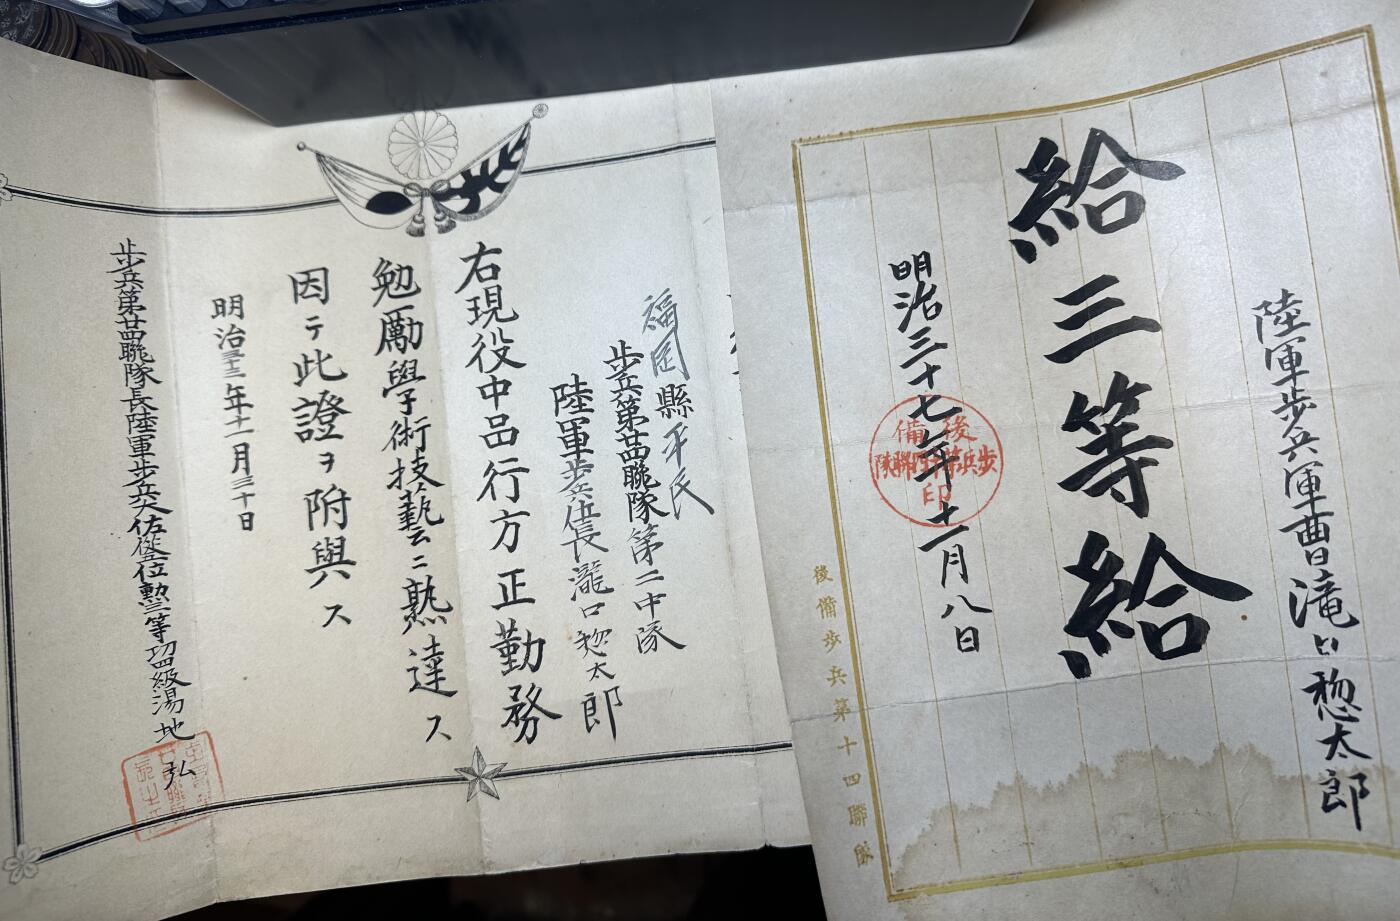 陸軍歩兵軍曹滝口惣太郎
給三等給
明治三十七年十一月八日
後備
歩兵第十四聯隊
印
後備歩兵第十四聯隊
福岡縣平民
歩兵第廿四聯隊第二中隊
陸軍歩兵伍長瀧口惣太郎
右現役中品行方正勤務
勉勵學術技藝ニ熟達ス
因テ此證ヲ附與ス
明治三十三年十一月三十日
歩兵第廿四聯隊長陸軍歩兵大佐從五位勲三等功四級湯地弘